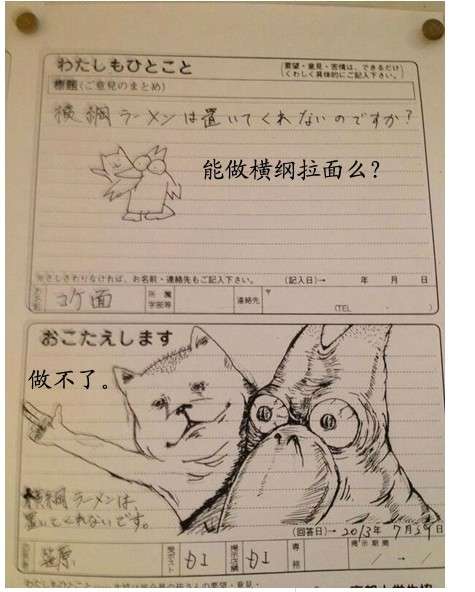 わたしもひとこと
要望・意見・苦情は、できるだけ
くわしく具体的にご記入下さい。
標題(ご意見のまとめ)
横綱ラーメンは置いてくれないのですか?
能做横纲拉面么?
さしさわりなければ、お名前・連絡先もご記入下さい。 (記入日)→ 年 月 日
コケ面
所属
学部等
連絡先
〒
(TEL )
おこたえします
做不了。
横綱ラーメンは、
置いてくれないです。
(回答日)→2013年 7月29日
笠原
掲示店舗
カエ
専務
掲示期間
→